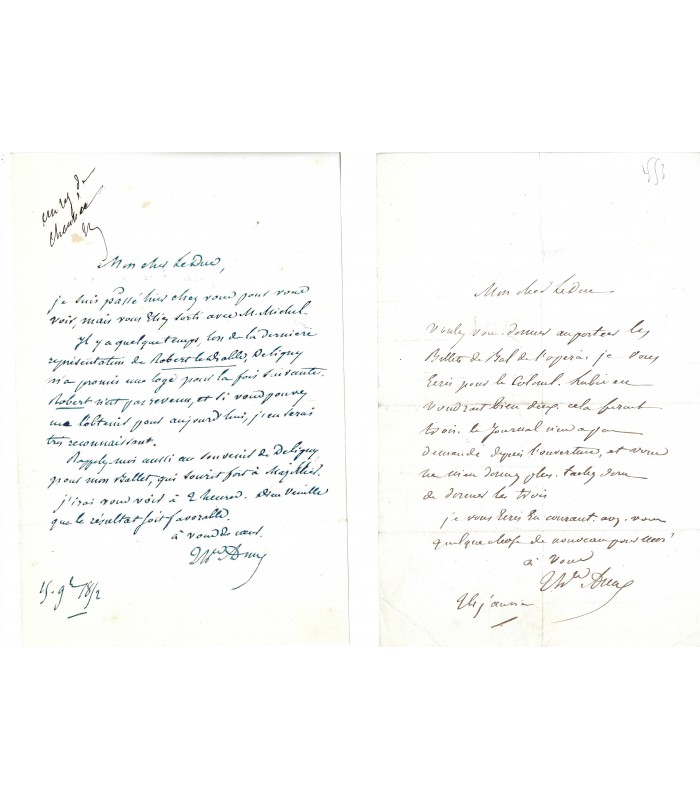 Mon cher Leduc,
je suis passé hier chez vous pour vous
voir, mais vous étiez sorti avec M. Michel.
Il y a quelque temps, lors de la dernière
représentation de Robert le diable, Deligny
m'a promis une loge pour la fois suivante.
Robert n'est pas revenu, et si vous pouvez
me l'obtenir pour aujourd'hui, j'en serai
très reconnaissant.
Rappelez-moi aussi au souvenir de Deligny
pour mon Ballet, qui sourit fort à Mazillier.
j'irai vous voir à 2 heures. Dieu veuille
que le résultat soit favorable.
à vous de cœur.
15. 9b 1852
453
Mon cher Leduc
Voulez vous donner au porteur les
Billets de Bal de l'opéra. je vous
Écris pour le Colonel.
Voudrait bien deux. cela ferait
trois. le Journal n'en a pas
demandé depuis l'ouverture, et vous
ne m'en donnez plus. tachez donc
de donner les trois
je vous Écris En courant. avez-vous
quelque chose de nouveau pour moi?
à vous
janvier